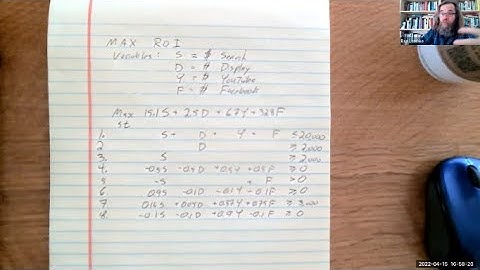 MAX ROI
Variables: S = $ Search
D = $ Display
Y = $ YouTube
F = $ Facebook
Max 15.1S + 2.5D + 6.7Y + 3.28F
st
1. S + D + Y + F ≤ 20,000
2 D ≥ 2,000
3. S ≥ 2,000
4. -0.5S -0.5D +0.5Y +0.5F ≥ 0
5 -S + F ≥ 0
6. 0.9S -0.1D -0.1Y -0.1F ≥ 0
7. ≥ 3,000
8. -0.1S -0.1D +0.9Y -0.1F ≥ 0
2022-04-15